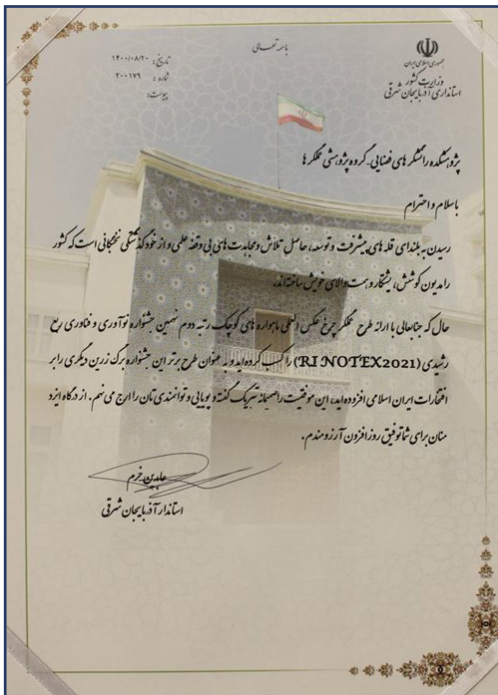 باسمه تعالی
جمهوری اسلامی ایران
وزارت کشور
استانداری آذربایجان شرقی
تاریخ: ۱۴۰۰/۰۸/۲۰
شماره: ۲۰۰۱۷۹
پیوست:
پژوهشکده رانشگرهای فضایی- گروه پژوهشی عملگرها
باسلام و احترام
رسیدن به بلندای قله های پیشرفت و توسعه، حاصل تلاش و مجاهدت های بی وقفه علمی و از خودگذشتگی نخبگانی است که کشور
را مدیون کوشش، پشتکار و همت والای خویش ساخته‌اند.
حال که جنابعالی با ارائه طرح عملگر چرخ عکس العملی ماهواره های کوچک رتبه دوم نهمین جشنواره نوآوری و فناوری ربع
رشیدی (RINOTEX2021) را کسب کرده اید و به عنوان طرح برتر این جشنواره برگ زرین دیگری را بر
افتخارات ایران اسلامی افزوده اید، این موفقیت را صمیمانه تبریک گفته و پویایی و توانمندی تان را ارج می نهم. از درگاه ایزد
منان برای شما توفیق روزافزون آرزومندم.
عابدین خرم
استاندار آذربایجان شرقی